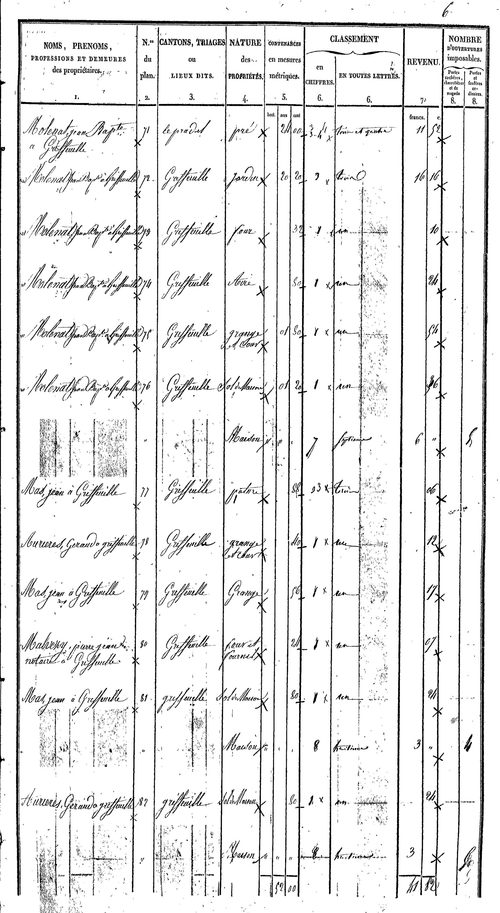 6
NOMS, PRENOMS, PROFESSIONS ET DEMEURES des propriétaires.
N.os du plan.
CANTONS, TRIAGES ou LIEUX DITS.
NATURE des PROPRIÉTÉS.
CONTENANCES en mesures métriques.
CLASSEMENT
en CHIFFRES.
EN TOUTES LETTRES.
REVENU.
NOMBRE D'OUVERTURES imposables.
1. 2. 3. 4. 5. 6. 6. 7. 8. 8.
francs. c.
Molenat, jean Bapte 71 le pradet pré 24 00 3 4 trois et quatre 11 52
à Griffeuille
Molenat jean Bapt à Griffeuille 72 Griffeuille jardin 20 20 3 trois 16 16
Molenat jean Bapt à Griffeuille 73 Griffeuille four 32 1 un 10
Molenat jean Bapt à Griffeuille 74 Griffeuille Aire 80 1 un 24
Molenat jean Bapt à Griffeuille 75 Griffeuille grange et cour 01 80 1 un 54
Molenat jean Bapt à Griffeuille 76 Griffeuille Sol de Maison 01 20 1 un 36
Maison 7 septieme 6 " 5
Mas, jean à Griffeuille 77 Griffeuille pature 88 3 trois 06
Aurieres, Geraud a griffeuille 78 Griffeuille grange et cour 40 1 un 12
Mas, jean à Griffeuille 79 Griffeuille Grange 56 1 un 17
pierre jean 80 Griffeuille four et fournil 24 1 un 07
notaire à Griffeuille
Mas, jean à Griffeuille 81 griffeuille Sol de Maison 80 1 un 24
Maison 8 huitieme 3 " 4
Aurieres, Geraud a griffeuille 82 griffeuille Sol de Maison 80 1 un 24
Maison 8 huitieme 3
52 00 41 82